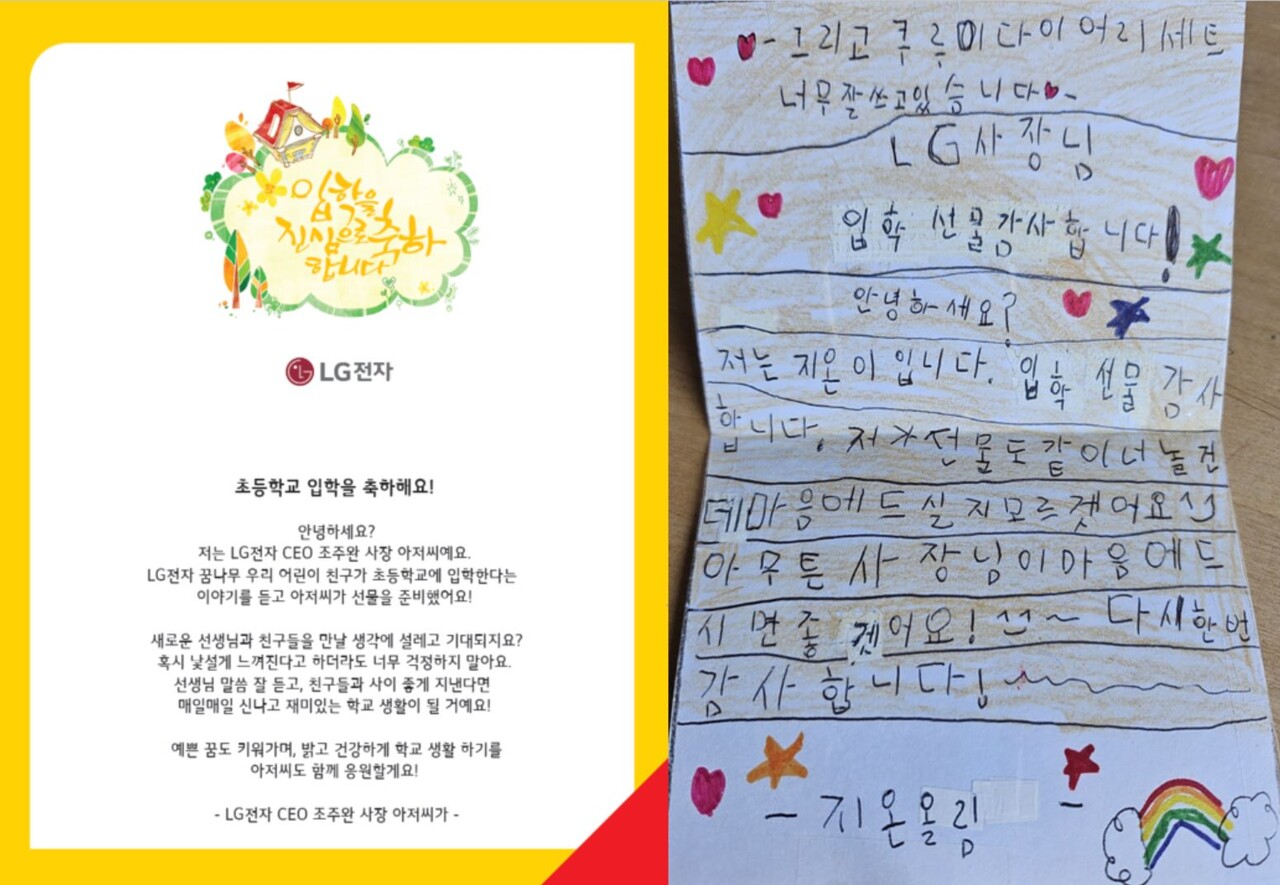 입학을
진심으로 축하
합니다
LG전자
초등학교 입학을 축하해요!
안녕하세요?
저는 LG전자 CEO 조주완 사장 아저씨예요.
LG전자 꿈나무 우리 어린이 친구가 초등학교에 입학한다는
이야기를 듣고 아저씨가 선물을 준비했어요!
새로운 선생님과 친구들을 만날 생각에 설레고 기대되지요?
혹시 낯설게 느껴진다고 하더라도 너무 걱정하지 말아요.
선생님 말씀 잘 듣고, 친구들과 사이 좋게 지낸다면
매일매일 신나고 재미있는 학교 생활이 될 거예요!
예쁜 꿈도 키워가며, 밝고 건강하게 학교 생활 하기를
아저씨도 함께 응원할게요!
- LG전자 CEO 조주완 사장 아저씨가 -
- 그리고 쿠루미다이어리세트
너무잘쓰고있습니다 -
LG사장님
입학 선물감사합니다!
안녕하세요?
저는 지온이입니다. 입학 선물 감사
합니다. 저가선물도같이너놀건
데마음에드실지모르겟어요^^
아무튼 사장님이마음에드
시면좋겟어요! ^^~ 다시한번
감사합니다!
- 지온올림 -